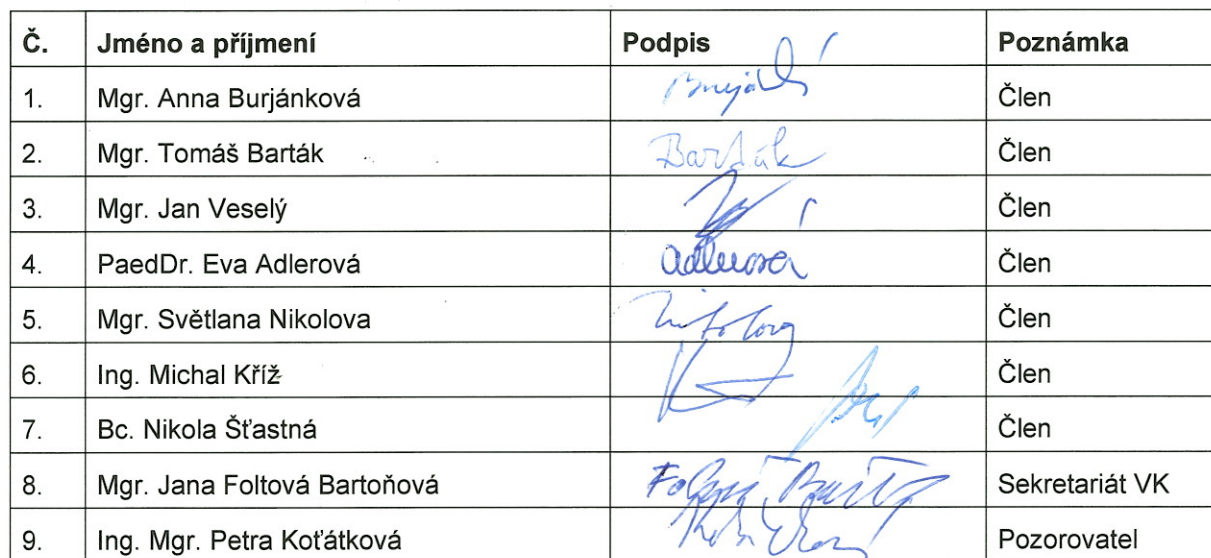 Č. Jméno a příjmení Podpis Poznámka
1. Mgr. Anna Burjánková Člen
2. Mgr. Tomáš Barták Barták Člen
3. Mgr. Jan Veselý Člen
4. PaedDr. Eva Adlerová Adlerová Člen
5. Mgr. Světlana Nikolova Člen
6. Ing. Michal Kříž Člen
7. Bc. Nikola Šťastná Člen
8. Mgr. Jana Foltová Bartoňová Sekretariát VK
9. Ing. Mgr. Petra Koťátková Pozorovatel